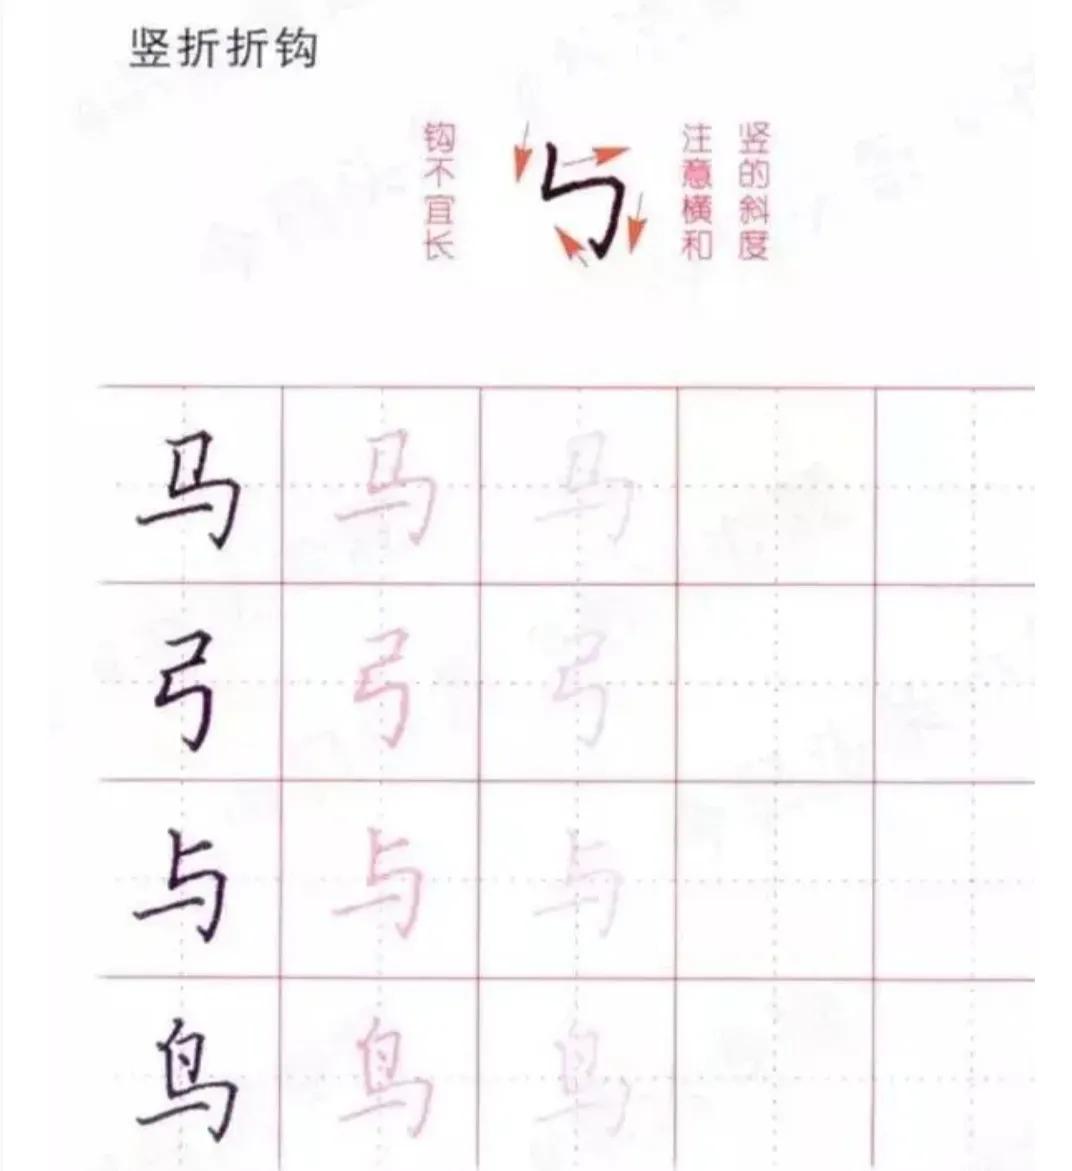 竖折折钩
钩不宜长
注意横和
竖的斜度
马 马 马
弓 弓 弓
与 与 与
鸟 鸟 鸟